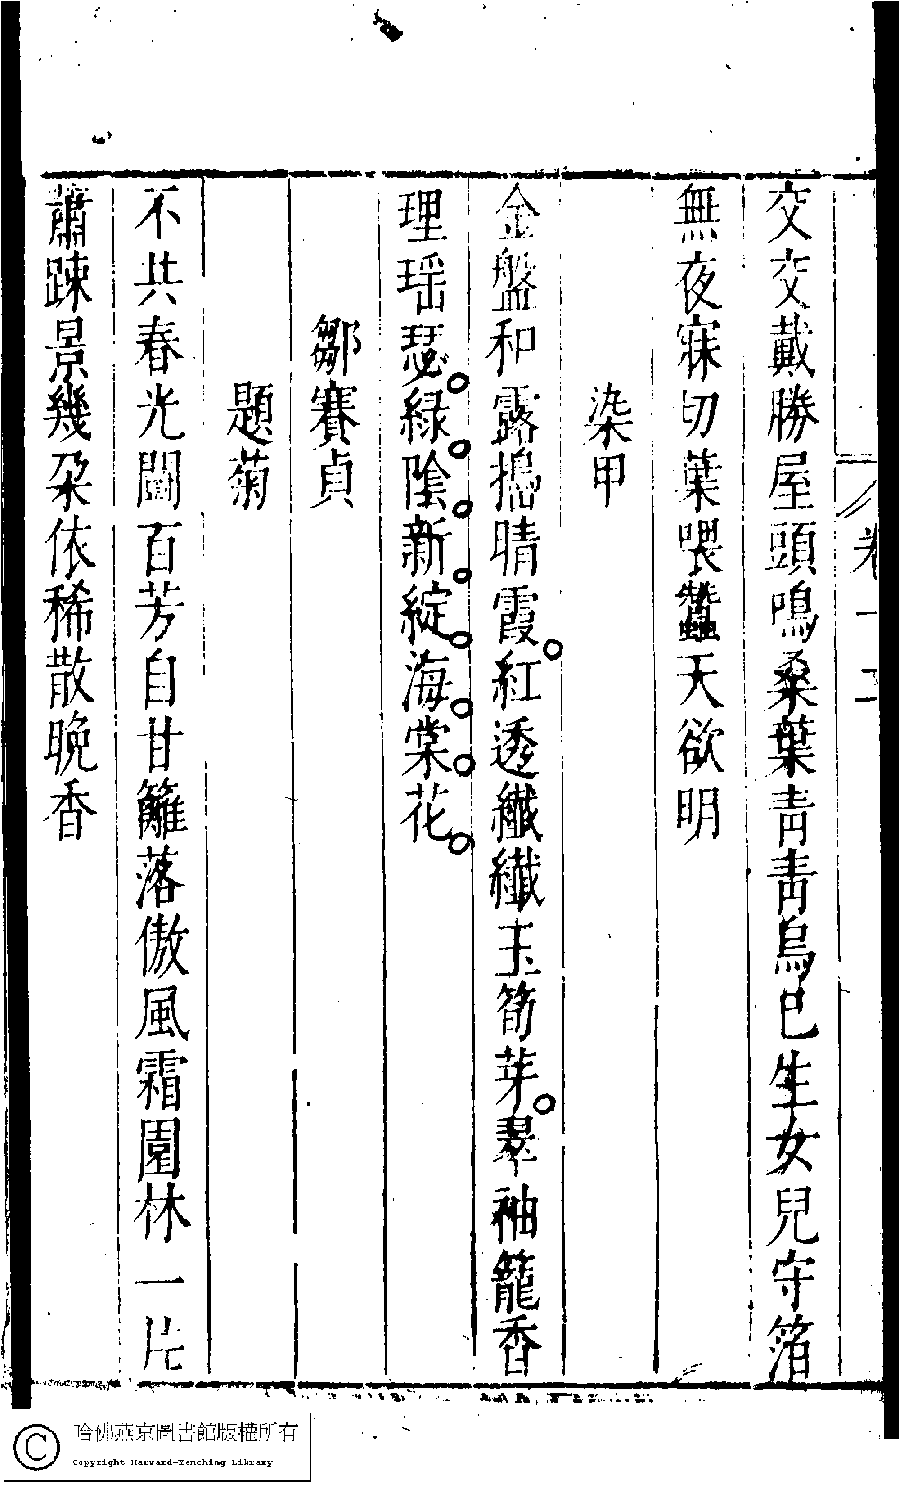 卷十二
交交戴勝屋頭鳴桑葉青青烏已生女兒守箔
無夜寐切葉喂蠶天欲明
染甲
金盤和露搗晴霞紅透纖纖玉笱芽翠袖籠香
理瑶瑟綠陰新綻海棠花
鄒賽貞
題菊
不共春光鬪百芳自甘籬落傲風霜園林一片
蕭踈景幾朶依稀散晚香
哈佛燕京圖書館版權所有
Copyright Harvard-Yenching Library